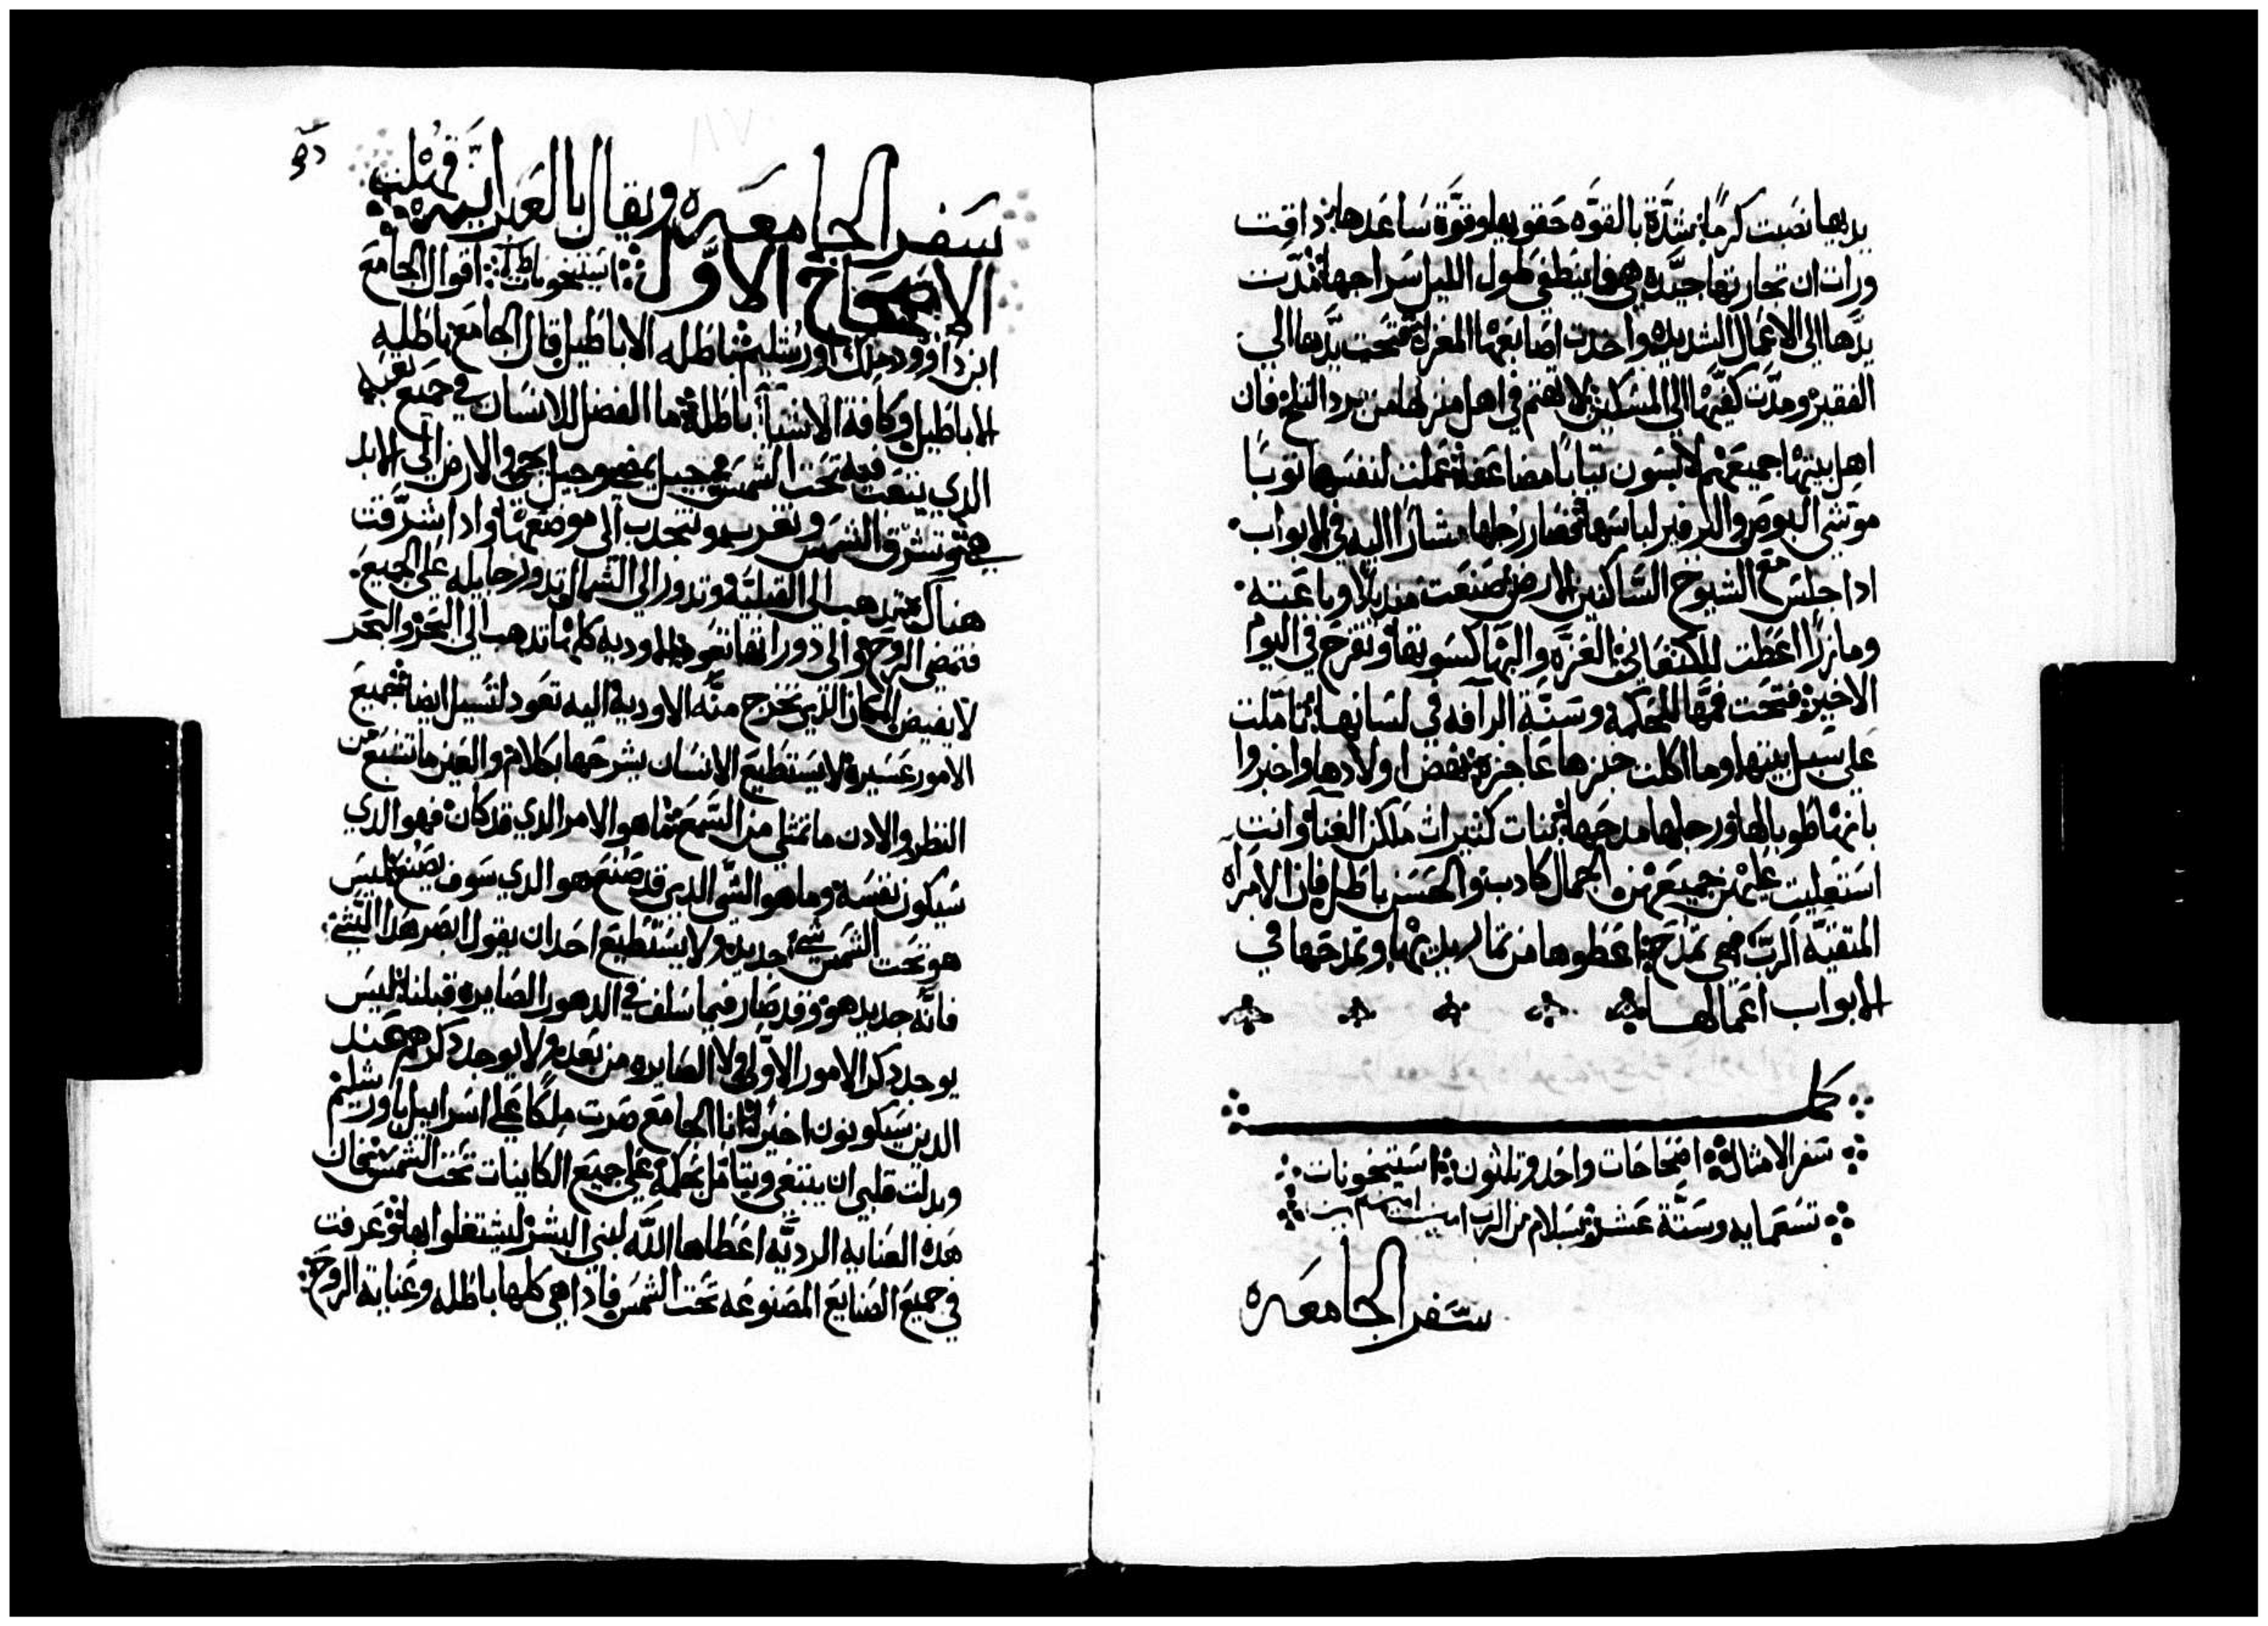 يديها نصبت كرمًا شدّة بالقوّه حقويها وقوّة ساعدها داقت
ورات ان تجارتها جيّده هي فما ينطفي طول الليل سراجها مدّت
يدّها الي الاعمال الشديده واخدت اصابعها المغزل فتحت يدّها الي
الفقير ومدّت كفيها الي المسكين لا تهتم في اهل منزلها من برد التلج فان
اهل بيتها جميعهم لابسون تيابًا مضاعفة عملت لنفسها توبًا
موتشي البوص والارفير لباسها فصار رجلها مشارًا اليه في الابواب
ادا جلس مع الشيوخ الساكنين الارض صنعت منديلًا وباعته
ومازرًا اعطت للكنعاني العزه والبها كسوتها وتفرح في اليوم
الاخير فتحت فمّها للحكمه وسنّة الرآفه في لسانها تاملت
علي سبل بيتها وما اكلت خبزها عاجزه نهض اولادها واخبروا
بانها طوبا لها ورجلها مدحها بنات كتيرات ملكن الغنا وانت
استعليت عليهن جميعهن الجمال كادب والحسن باطل فان الامراه
المتقيّه الرب هي تمدح اعطوها من تمار يديها وتمدحها في
الابواب اعمالها
كمل
سفر الامثال اصحاحات واحد وتلثون استيخونات
تسعمايه وستّة عشر بسلام من الرب امين امين امين
سفر الجامعه
سفر الجامعه ويقال بالعبرانيه قهلت
الاصحاح الاوّل استيخونات اقوال الجامع
ابن داوود ملك اورشليم باطله الاباطيل قال الجامع باطله
الاباطيل وكافة الاشيا باطلة ما الفضل للانسان في جميع تعبه
الدي يتعب فيه تحت الشمس جيل يمضي وجيل يجي والارض الي الابد
هي تشرق الشمس وتغرب وتنجدب الي موضعها وادا شرّقت
هناك تدهب الي القبليّه وتدور الي الشمال تدور حايله علي الجميع
فتمضي الروح والي دوراتها تعود الاوديه كلها تدهب الي البحر والبحر
لا يفيض المكان الدي تخرج منه الاودية اليه تعود لتسيل ايضا جميع
الامور عسيرة لا يستطيع الانسان يشرحها بكلام والعين ما تشبع من
النظر والادن ما تمتلي من السمع ما هو الامر الدي قد كان فهو الدي
سيكون نفسه وما هو الشي الدي قد صنع هو الدي سوف يصنع ليس
هو تحت الشمس شي جديد ولا يستطيع احد ان يقول ابصر هدا الشي
فانّه جديد هو وقد صار فيما سلف في الدهور الصايره قبلنا ليس
يوجد دكر الامور الاوّلي ولا الصايره من بعده ولا يوجد دكرهم عند
الدين سيكونون اخيرًا انا الجامع صرت ملكًا علي اسراييل باورشليم
وبدلت قلبي ان يبتغي ويتامّل بحكمة علي جميع الكاينات تحت الشمس
هده العنايه الرديّه اعطاها اللّه لبني البشر ليشتغلوا بها وعرفت
في جميع الصنايع المصنوعه تحت الشمس فادا هي كلها باطله وعناية الروح